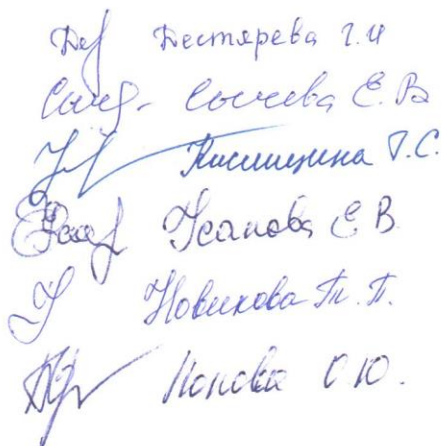 Дестярева Г.И
Сычева Е.В
Кислицина Т.С.
Усанова Е.В.
Новикова Т.П.
Попова О.Ю.